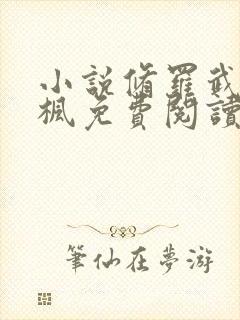 小說脩羅武
楓免費閱讀
筆仙在夢游